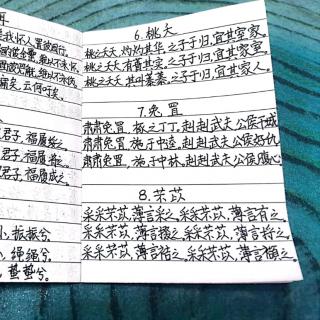 是我怀人,置彼周行。
维以不永怀。
维以不永伤。
痡矣,云何吁矣。
君子,福履绥之。
君子,福履将之。
君子,福履成之。
振振兮。
绳绳兮。
蛰蛰兮。
6.桃夭
桃之夭夭,灼灼其华,之子于归,宜其室家。
桃之夭夭,有蕡其实,之子于归,宜其家室。
桃之夭夭,其叶蓁蓁,之子于归,宜其家人。
7.兔罝
肃肃兔罝,椓之丁丁,赳赳武夫,公侯干城
肃肃兔罝,施于中逵,赳赳武夫,公侯好仇
肃肃兔罝,施于中林,赳赳武夫,公侯腹心
8.芣苡
采采芣苡,薄言采之,采采芣苡,薄言有之。
采采芣苡,薄言掇之,采采芣苡,薄言捋之。
采采芣苡,薄言袺之,采采芣苡,薄言襭之。